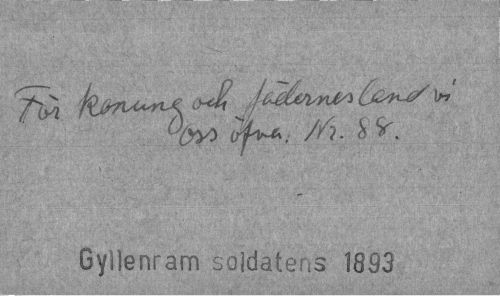 För konung och fädernesland vi
oss öfva. Nr. 88.
Gyllenram soldatens 1893